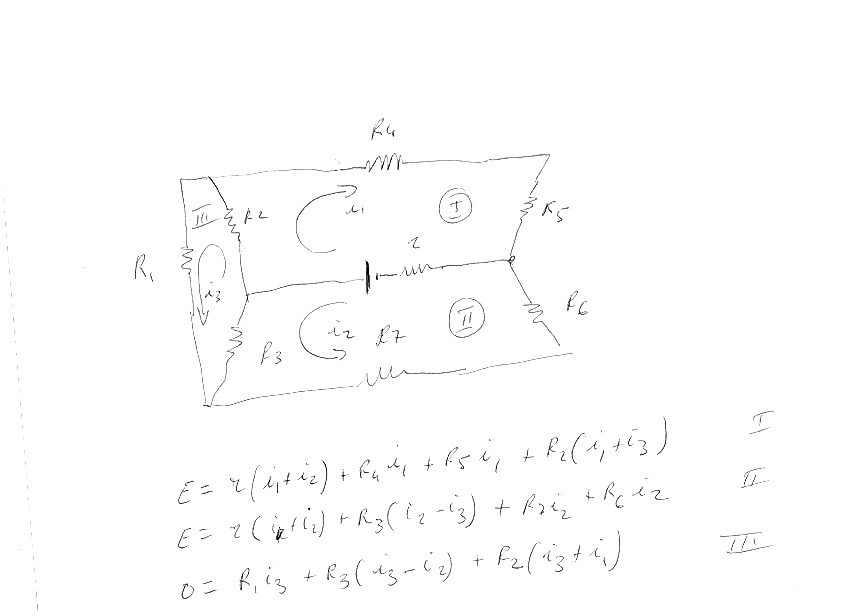 R4
III
R2
i1
I
R5
R1
i3
r
i2
R7
II
R6
R3
E = r(i1+i2) + R4 i1 + R5 i1 + R2(i1+i3) I
E = r(i1+i2) + R3(i2-i3) + R7i2 + R6 i2 II
0 = R1 i3 + R3(i3-i2) + R2(i3+i1) III